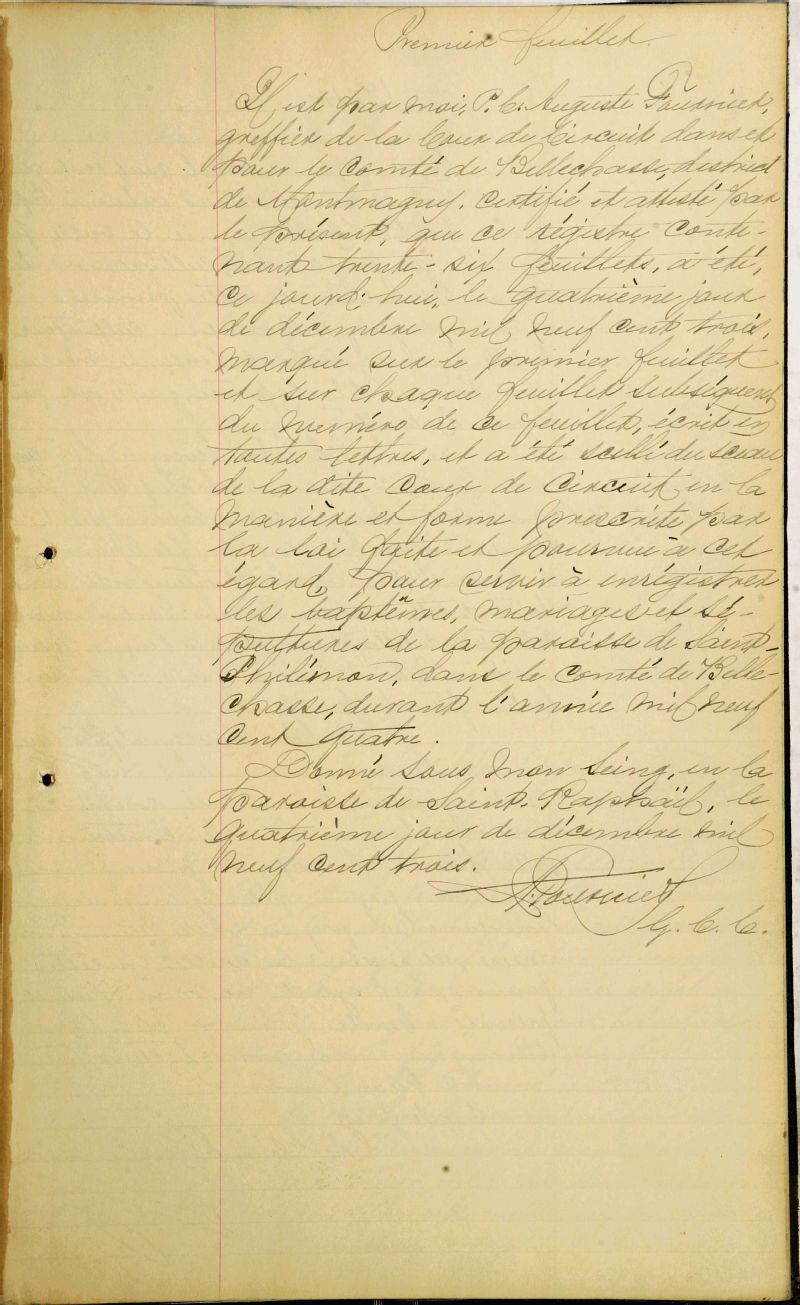 Premier feuillet.
Il est par moi, P. C. Auguste Fournier,
greffier de la Cour de Circuit dans et
pour le comté de Bellechasse, district
de Montmagny, certifié et attesté par
le présent, que ce régistre conte-
nant trente-six feuillets, a été,
ce jourd'hui, le quatrième jour
de décembre mil neuf cent trois,
marqué sur le premier feuillet
et sur chaque feuillet subséquent
du numéro de ce feuillet, écrit en
toutes lettres, et a été scellé du sceau
de la dite Cour de Circuit en la
manière et forme prescrite par
la loi faite et pourvue à cet
égard, pour servir à enrégistrer
les baptêmes, mariages et sé-
pultures de la paroisse de Saint-
Philémon, dans le comté de Belle-
chasse, durant l'année mil neuf
cent quatre.
Donné sous mon seing, en la
paroisse de Saint-Raphaël, le
quatrième jour de décembre mil
neuf cent trois.
A. Fournier
G. C. C.